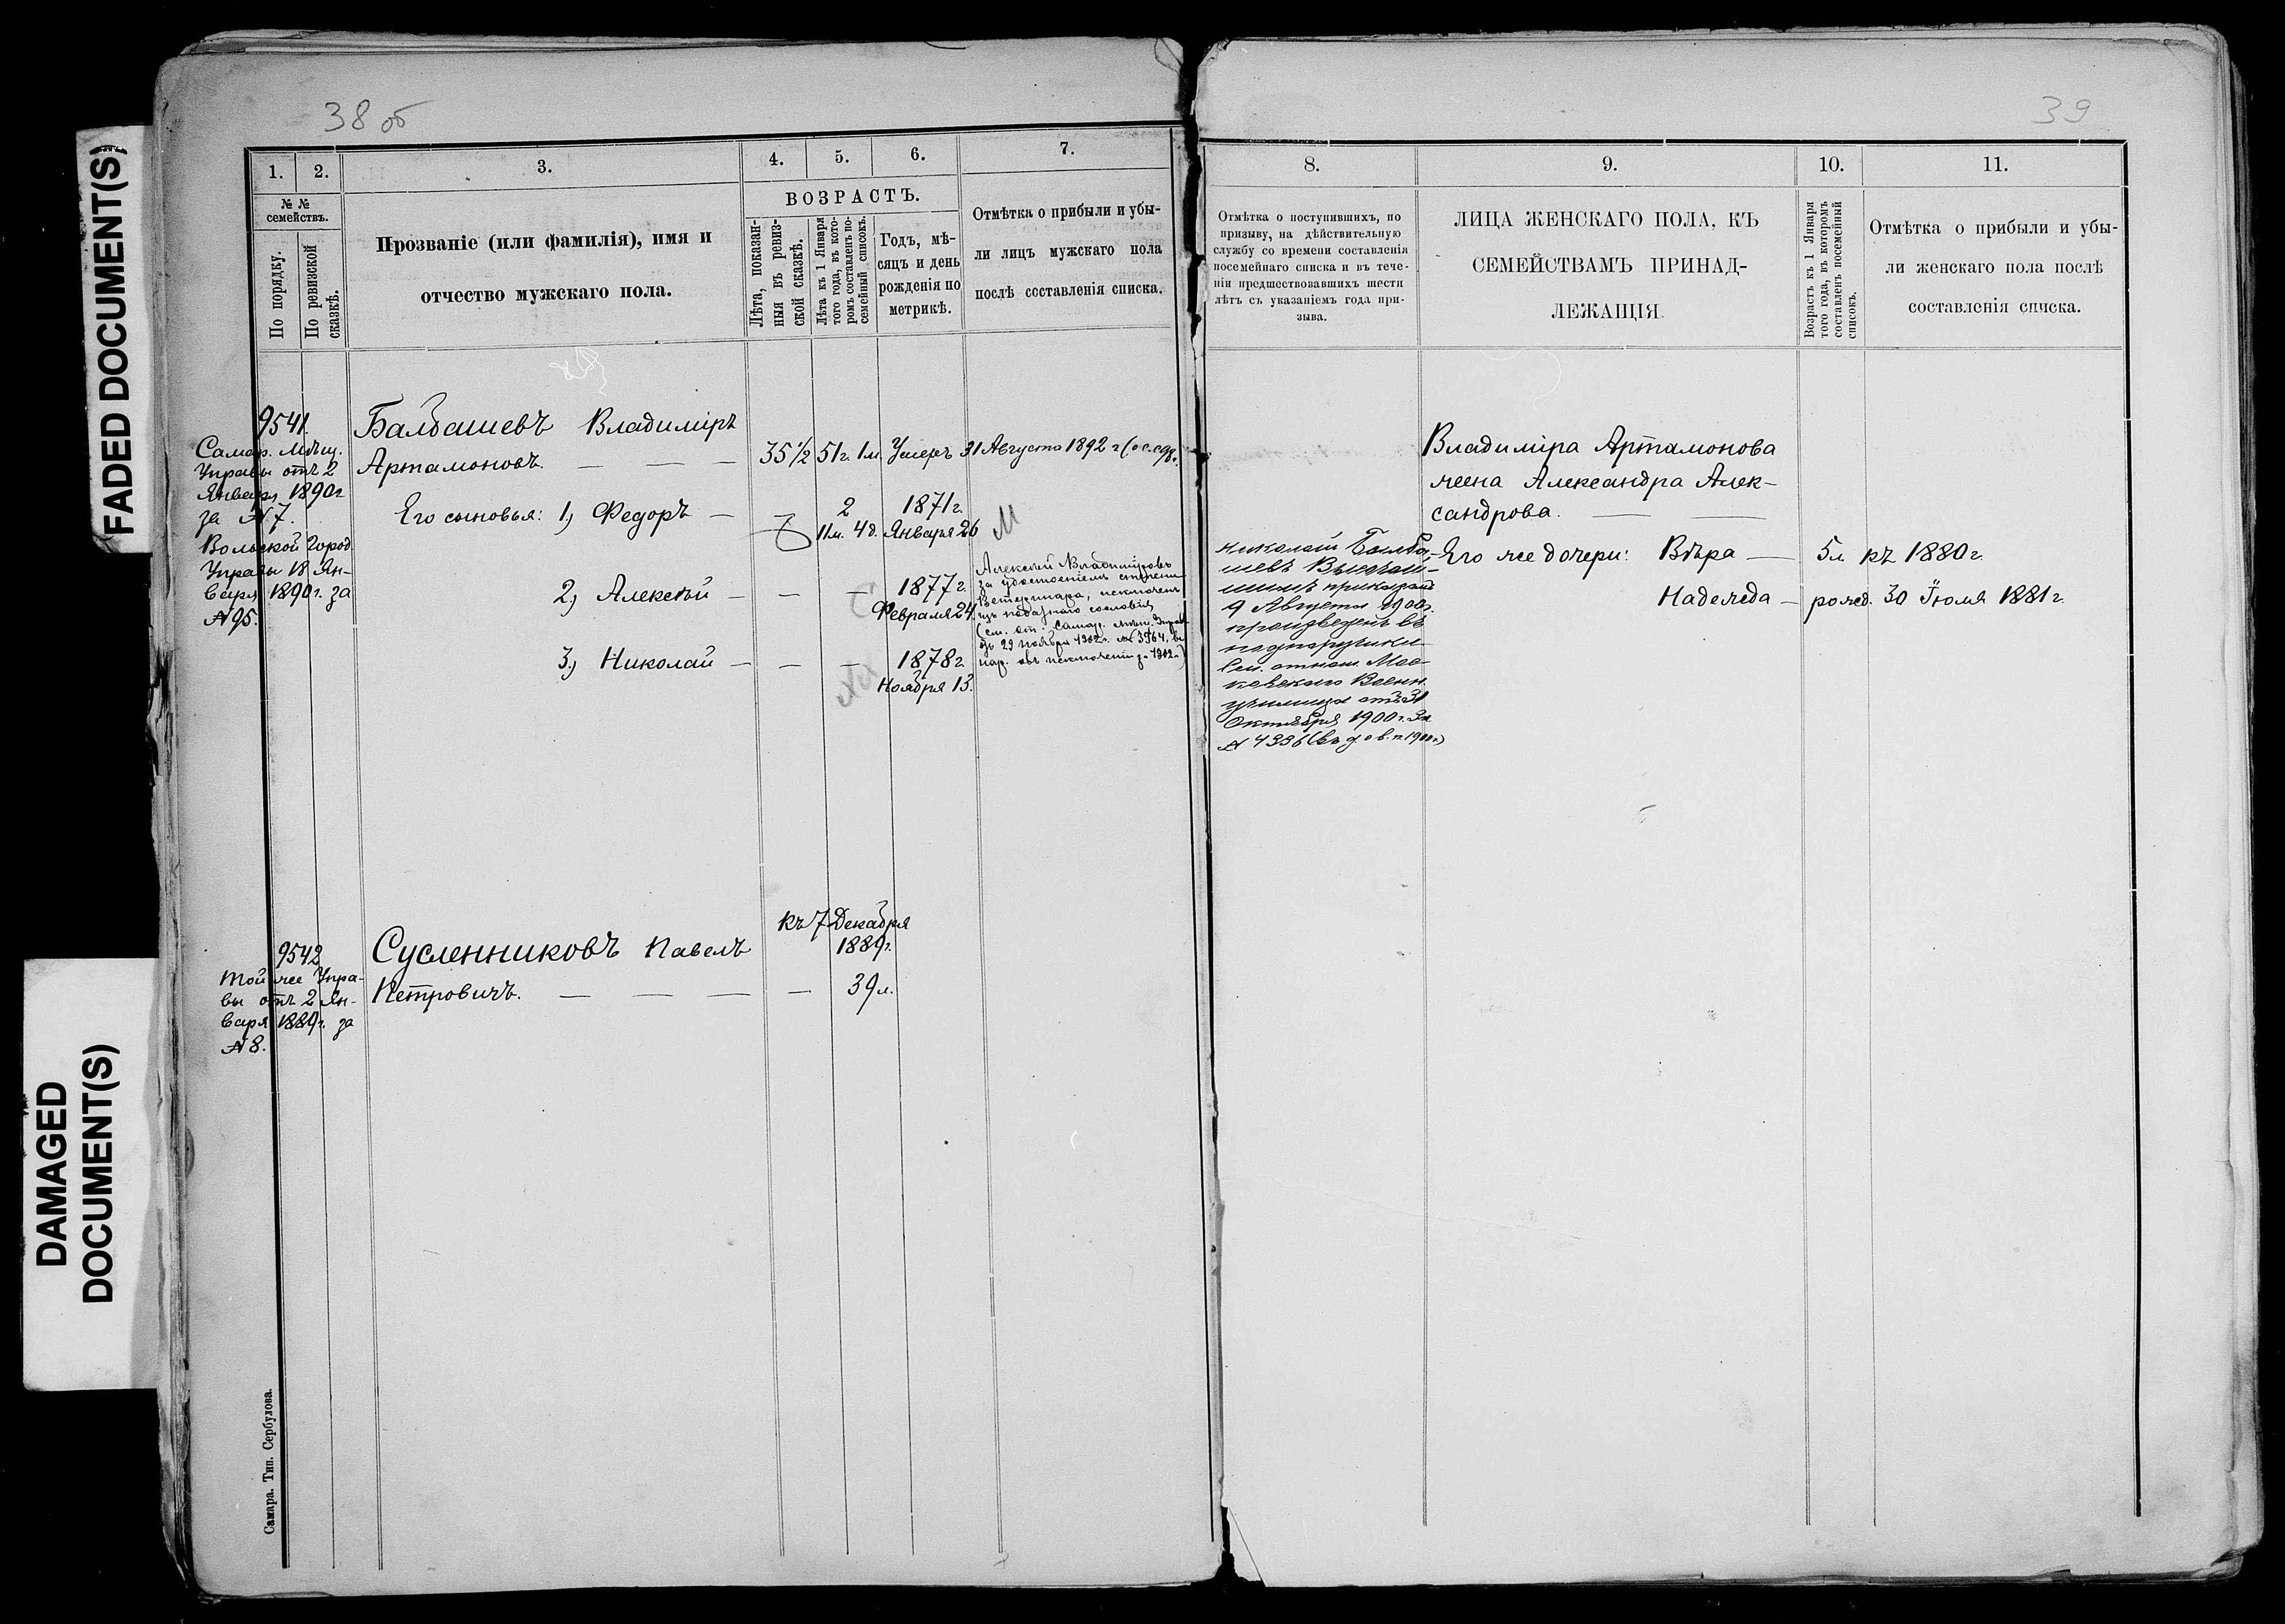 FADED DOCUMENT(S)
DAMAGED
DOCUMENT(S)
38 об
1.
2.
3.
4.
5.
6.
7.
№ №
семействъ.
По порядку.
По ревизской
сказкѣ.
Прозваніе (или фамилія), имя и
отчество мужскаго пола.
ВОЗРАСТЪ.
Лѣта, показан-
ныя въ ревиз-
ской сказкѣ.
Лѣта къ 1 Января
того года, въ кото-
ромъ составленъ по-
семейный списокъ.
Годъ, мѣ-
сяцъ и день
рожденія по
метрикѣ.
Отмѣтка о прибыли и убы-
ли лицъ мужскаго пола
послѣ составленія списка.
9541.
Самар. Мѣщ.
Управы отъ 2
Января 1890 г.
за № 7.
Вольской Город.
Управы 18 Ян-
варя 1890 г. за
№ 95.
Балбашевъ Владиміръ
Артамоновъ. — — —
35 1/2
51 г. 1 м.
Умеръ 31 Августа 1892 г
Его сыновья: 1, Федоръ —
2
11 м. 4 д.
1871 г.
Января 26
М
2, Алексѣй — — —
1877 г.
Февраля 24.
Алексѣй Владиміровъ
за удостоеніемъ степени
Ветеринара, исключенъ
изъ податнаго сословія
(см. от. Самар. Мѣщ. Управ.
отъ 29 Ноября 1902 г. № 3964, въ
нар. объ исключеніи за 1902 г.)
3, Николай — — —
1878 г.
Ноября 13.
9542
Той же Упра-
вы отъ 2 Ян-
варя 1889 г. за
№ 8.
Сусленниковъ Павелъ
Петровичъ. — — — —
къ 7 Декабря
1889 г.
39 л.
Самара. Тип. Сербулова.
39
8.
9.
10.
11.
Отмѣтка о поступившихъ, по
призыву, на дѣйствительную
службу со времени составленія
посемейнаго списка и въ тече-
ніи предшествовавшихъ шести
лѣтъ съ указаніемъ года при-
зыва.
ЛИЦА ЖЕНСКАГО ПОЛА, КЪ
СЕМЕЙСТВАМЪ ПРИНАД-
ЛЕЖАЩІЯ.
Возрастъ къ 1 Января
того года, въ которомъ
составленъ посемейный
списокъ.
Отмѣтка о прибыли и убы-
ли женскаго пола послѣ
составленія списка.
Владиміра Артамонова
жена Александра Алек-
сандрова. — —
Его же дочери: Вѣра —
5 л къ 1880 г.
Надежда —
рожд. 30 Іюля 1881 г.
Николай Балба-
шевъ Высочай-
шимъ приказомъ
9 Августа 1900 г.
произведенъ въ
подпоручики
см. отнош. Мос-
ковскаго Военн.
училища отъ 31
Октября 1900 г. за
№ 4336